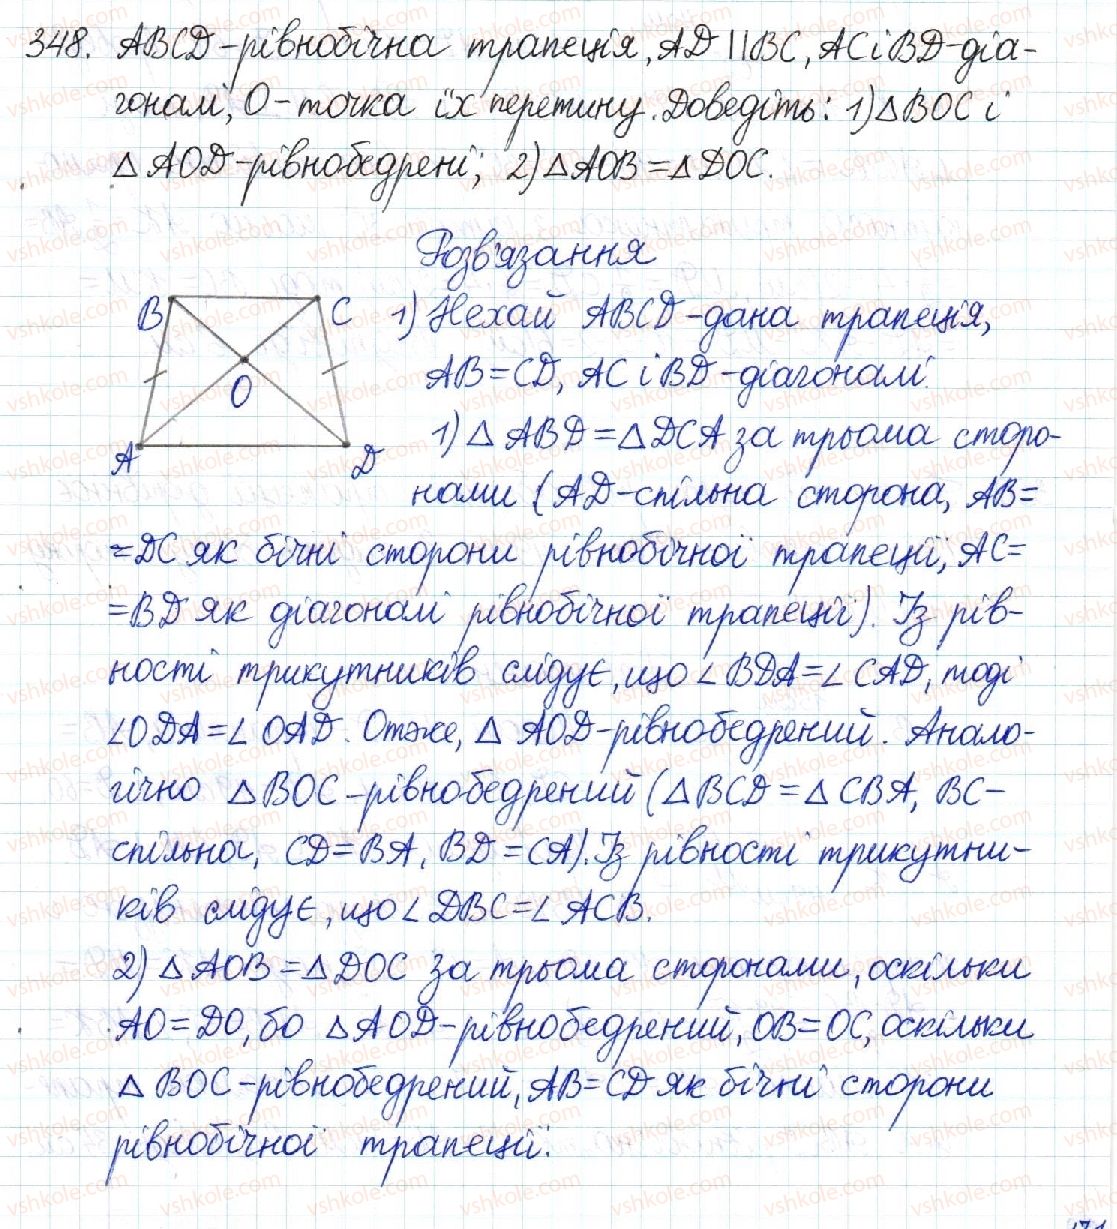 348. ABCD-рівнобічна трапеція, AD || BC, AC і BD-діа-
гоналі, O-точка їх перетину. Доведіть: 1) △BOC і
△AOD-рівнобедрені; 2) △AOB = △DOC.
Розв'язання
B C
O
A D
1) Нехай ABCD-дана трапеція,
AB = CD, AC і BD-діагоналі.
1) △ABD = △DCA за трьома сторо-
нами (AD-спільна сторона, AB =
= DC як бічні сторони рівнобічної трапеції, AC =
= BD як діагоналі рівнобічної трапеції). Із рів-
ності трикутників слідує, що ∠BDA = ∠CAD, тоді
∠ODA = ∠OAD. Отже, △AOD-рівнобедрений. Анало-
гічно △BOC-рівнобедрений (△BCD = △CBA, BC-
спільна, CD = BA, BD = CA). Із рівності трикутни-
ків слідує, що ∠DBC = ∠ACB.
2) △AOB = △DOC за трьома сторонами, оскільки
AO = DO, бо △AOD-рівнобедрений, OB = OC, оскільки
△BOC-рівнобедрений, AB = CD як бічні сторони
рівнобічної трапеції.
vshkole.com